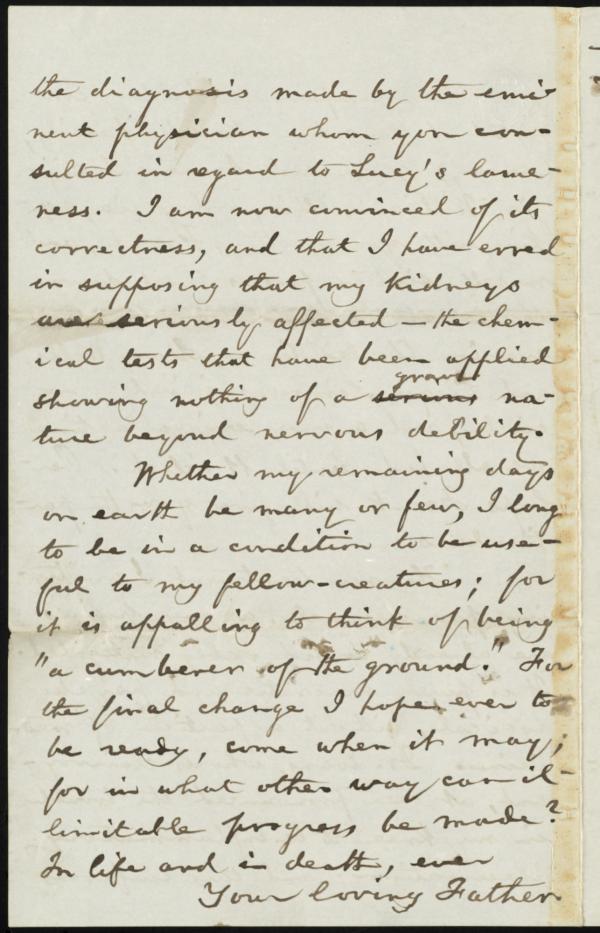 the diagnosis made by the emi-
nent physician whom you con-
sulted in regard to Lucy's lame-
ness. I am now convinced of its
correctness, and that I have erred
in supposing that my kidneys
were seriously affected — the chem-
ical tests that have been applied
showing nothing of a serious grave na-
ture beyond nervous debility.
Whether my remaining days
on earth be many or few, I long
to be in a condition to be use-
ful to my fellow-creatures; for
it is appalling to think of being
"a cumberer of the ground." For
the final change I hope ever to
be ready, come when it may;
for in what other way can il-
limitable progress be made?
In life and in death, ever
Your loving Father.